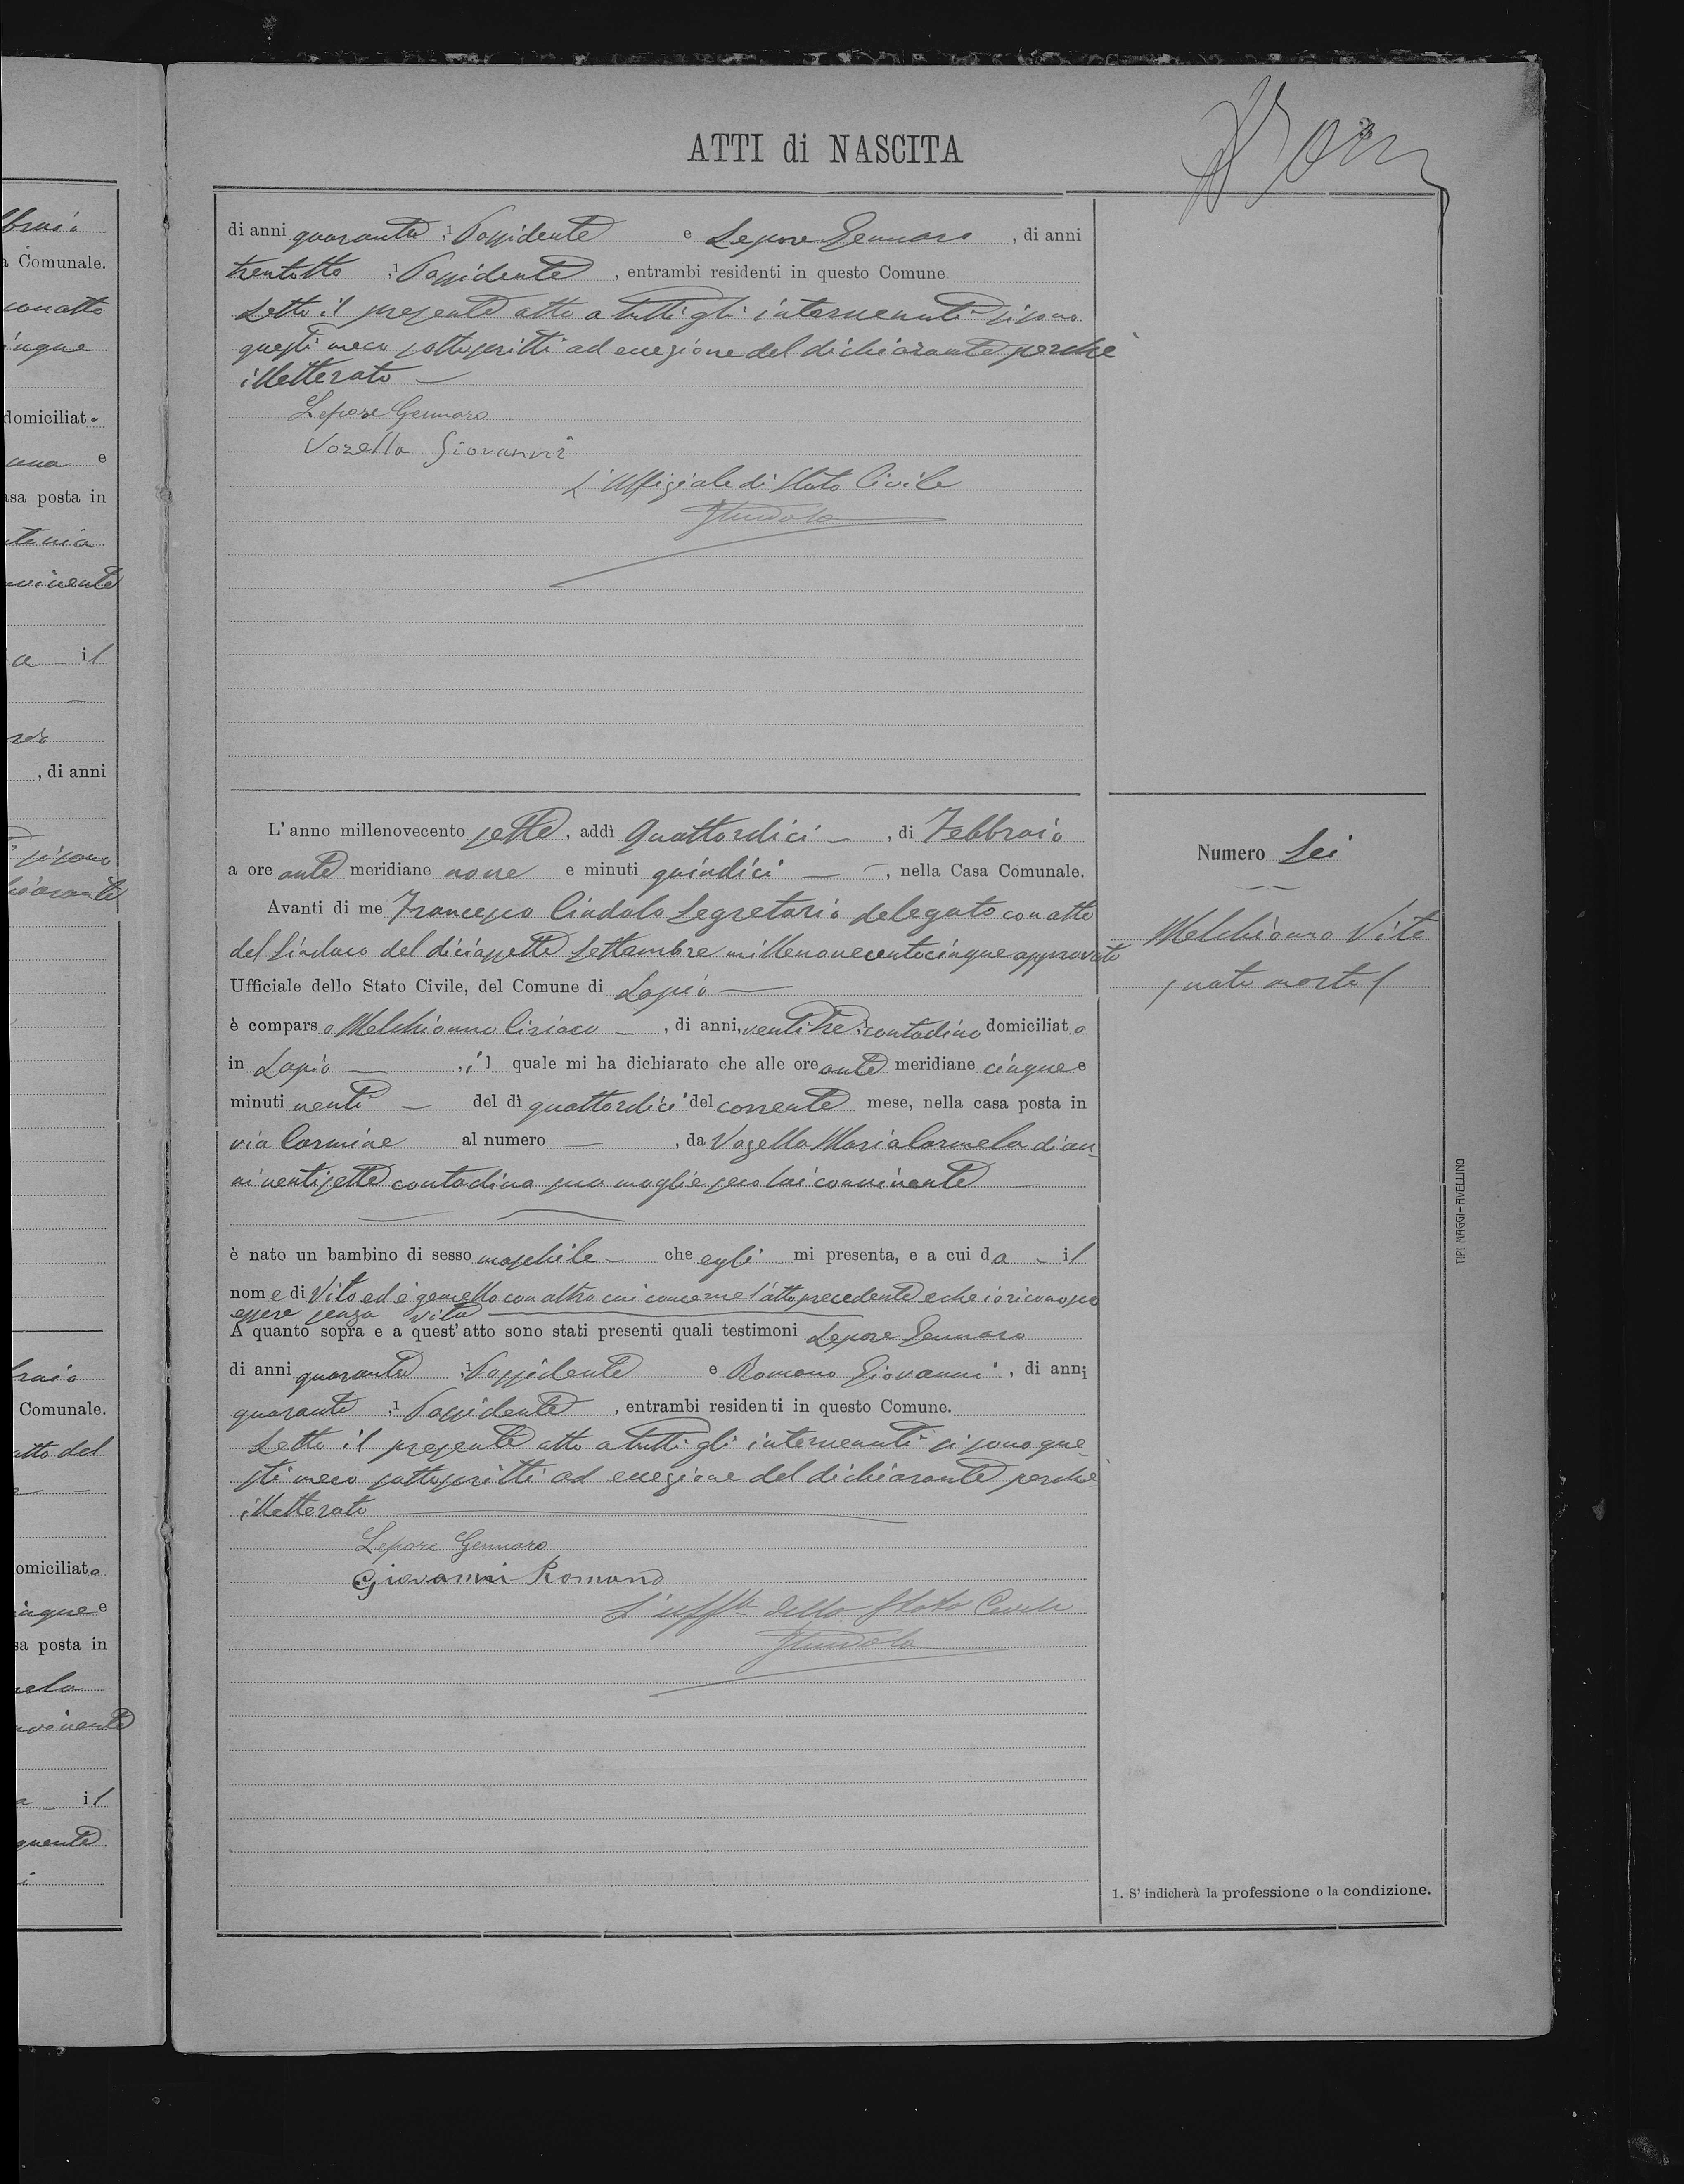 ATTI di NASCITA
di anni quaranta 1 Possidente e Lepore Gennaro, di anni
trentotto 1 Possidente, entrambi residenti in questo Comune.
Letto il presente atto a tutti gli intervenuti si sono
questi meco sottoscritti ad eccezione del dichiarante perchè
illetterato —
Lepore Gennaro
Vozella Giovanni
L'Uffiziale di Stato Civile
L'anno millenovecento sette, addì Quattordici —, di Febbraio
a ore ante meridiane nove e minuti quindici —, nella Casa Comunale.
Avanti di me Francesco Cindolo Segretario delegato con atto
del Sindaco del diciassette Settembre millenovecentocinque approvato
Ufficiale dello Stato Civile, del Comune di Lapio —
è comparso Melchionno Ciriaco —, di anni, ventitre, contadino domiciliato
in Lapio —, il quale mi ha dichiarato che alle ore ante meridiane cinque e
minuti venti — del dì quattordici del corrente mese, nella casa posta in
via Carmine al numero —, da Vozella Maria Carmela di an-
ni ventisette contadina sua moglie seco lui convivente —
è nato un bambino di sesso maschile — che egli mi presenta, e a cui da — il
nome di Vito ed è gemello con altro cui concerne l'atto precedente e che io riconosco
essere senza vita
A quanto sopra e a quest'atto sono stati presenti quali testimoni Lepore Gennaro
di anni quaranta 1 Possidente e Romano Giovanni, di anni
quaranta 1 Possidente, entrambi residenti in questo Comune.
Letto il presente atto a tutti gli intervenuti si sono que-
sti meco sottoscritti ad eccezione del dichiarante perchè
illetterato —
Lepore Gennaro
Giovanni Romano
L'uff.le dello Stato Civile
Numero Sei
Melchionno Vito
nato morto
1. S'indicherà la professione o la condizione.
TIPI MAGGI-AVELLINO
braio
a Comunale.
con atto
inque
domiciliato
ana e
asa posta in
tonia
nvivente
a — il
, di anni
si sono
hiarante
braio
Comunale.
atto del
omiciliato
inque e
sa posta in
mela
nvivente
a — il
guente